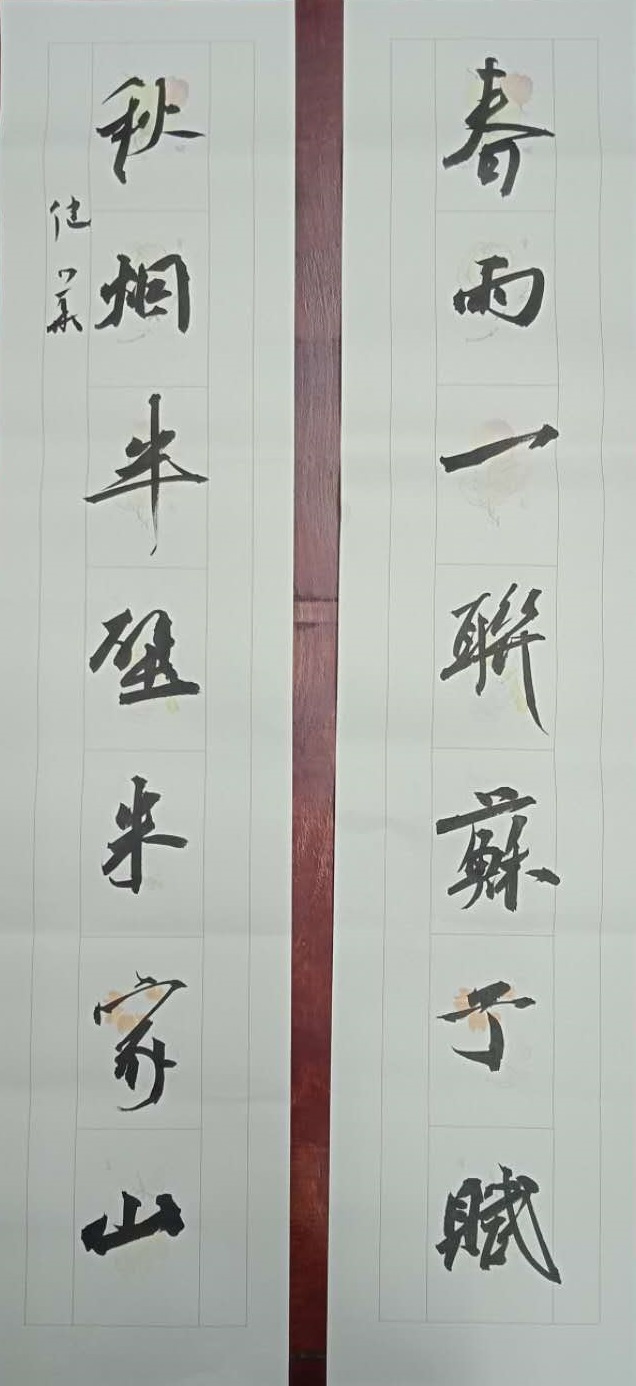 春雨一聯蘇子賦
秋烟半壁米家山
健華